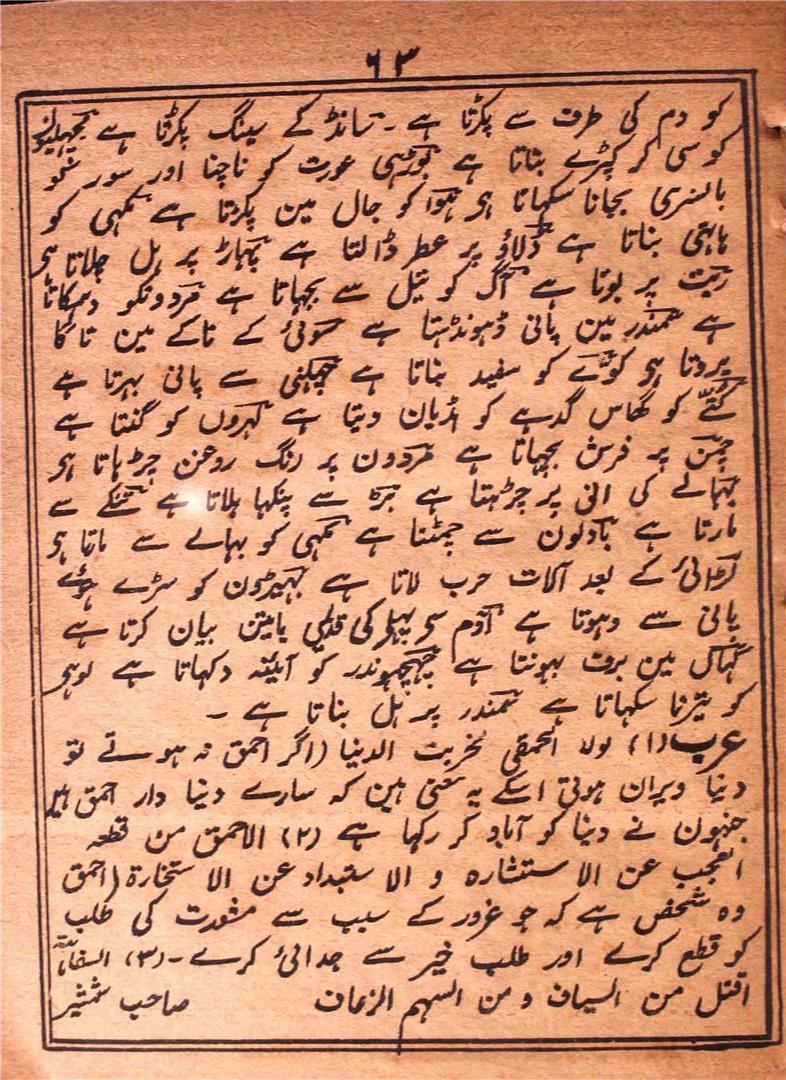 ۶۳
کو دم کی طرف سے پکڑتا ہے ۔ سانڈ کے سینگ پکڑتا ہے مچھلیوں
کو سی کر کپڑے بناتا ہے بوڑھی عورت کو ناچنا اور سور کو
بانسری بجانا سکھاتا ہی ہوا کو جال مین پکڑتا ہے مکھی کو
ہاتھی بناتا ہے ڈلاؤ پر عطر ڈالتا ہے پہاڑ پر ہل چلاتا ہی
ریت پر بوتا ہے آگ کو تیل سے بجہاتا ہے مردونکو دہمکاتا
ہے سمندر مین پانی ڈہونڈہتا ہے سوئی کے ناکے مین تاگا
پروتا ہی کوّے کو سفید بناتا ہے چھلنی سے پانی بہرتا ہے
کتّے کو گھاس گدہے کو ہڈیان دیتا ہے لہروں کو گنتا ہے
چمن پر فرش بچہاتا ہے مردون پر رنگ روغن چڑہاتا ہی
بہالے کی انی پر چڑہتا ہے پرہ سے پنکہا ہلاتا ہے تنکے سے
مارتا ہے بادلون سے چمٹتا ہے مکہی کو بہالے سے مارتا ہی
لڑائی کے بعد آلات حرب لاتا ہے بہیڑون کو سڑے ہوئے
پانی سے دہوتا ہے آدم سی پہلے کی قدیمی باتین بیان کرتا ہے
گہاس مین برف بہونتا ہے چہچہوندر کو آئینہ دکہاتا ہے لوہی
کو تیرنا سکہاتا ہے سمندر پر پل بناتا ہے ۔
عرب (۱) لولا الحمقی لخربت الدنیا (اگر احمق نہ ہوتے تو
دنیا ویران ہوتی اسکے یہ معنی ہین کہ سارے دنیا دار احمق ہین
جنہون نے دنیا کو آباد کر رکہا ہے (۲) الاحمق من قطعہ
العجب عن الاستشارہ و الاستبداد عن الاستخارۃ (احمق
وہ شخص ہے کہ جو غرور کے سبب سے مشورت کی طلب
کو قطع کرے اور طلب خیر سے جدائی کرے ۔ (۳) السفاہۃ
اقتل من السیاف و من السہم الزعاف صاحب شمشیر